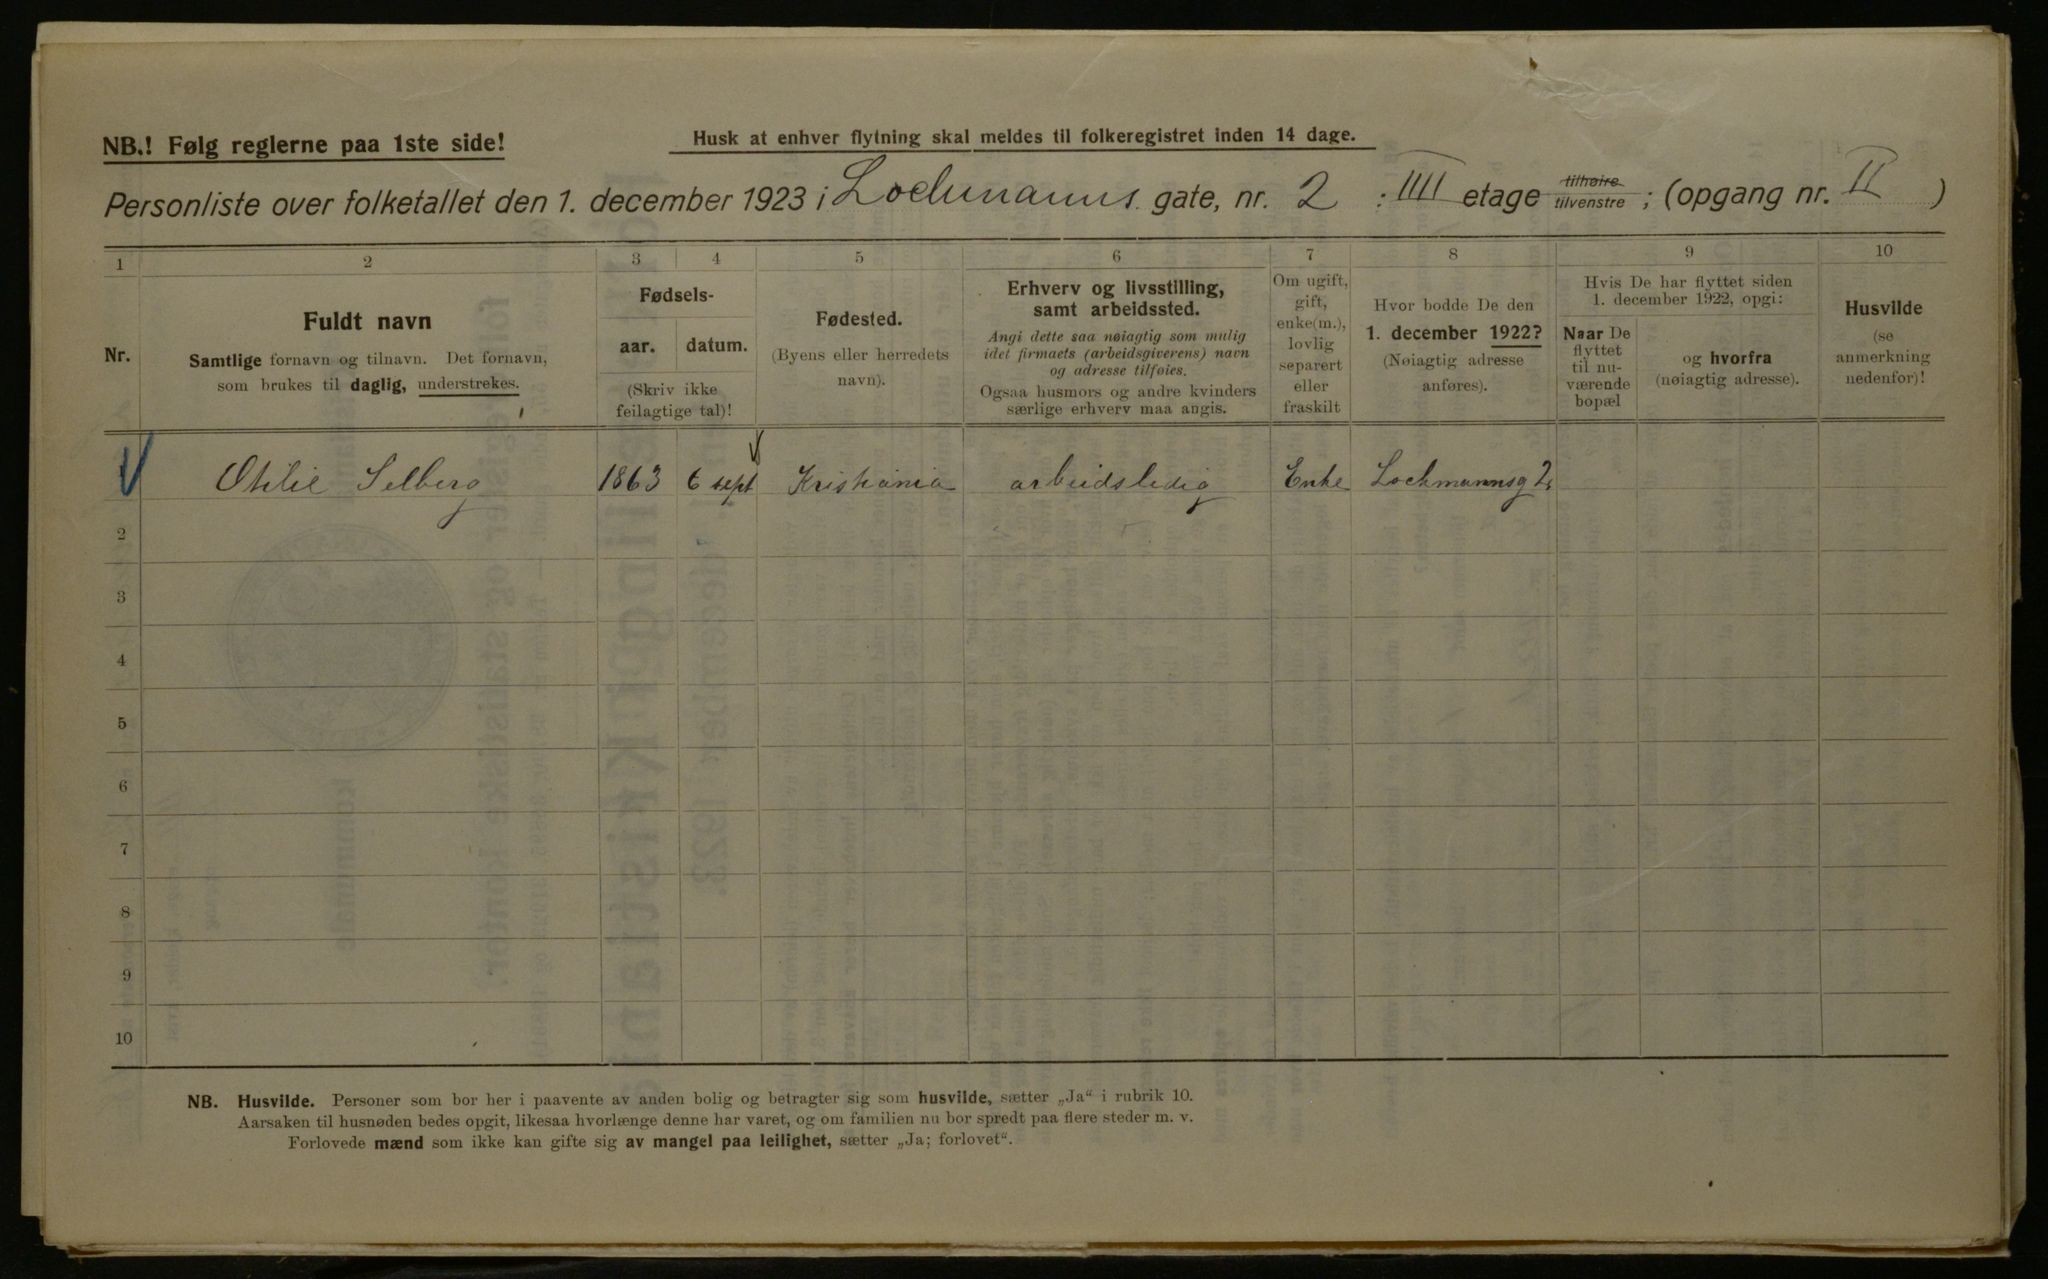 NB.! Følg reglerne paa 1ste side!
Husk at enhver flytning skal meldes til folkeregistret inden 14 dage.
Personliste over folketallet den 1. december 1923 i Lochmanns gate, nr. 2 : IIII etage tilhøire tilvenstre ; (opgang nr. II )
1 2 3 4 5 6 7 8 9 10
Nr.
Fuldt navn
Samtlige fornavn og tilnavn. Det fornavn,
som brukes til daglig, understrekes.
Fødsels-
aar. datum.
(Skriv ikke
feilagtige tal)!
Fødested.
(Byens eller herredets
navn).
Erhverv og livsstilling,
samt arbeidssted.
Angi dette saa nøiagtig som mulig
idet firmaets (arbeidsgiverens) navn
og adresse tilføies.
Ogsaa husmors og andre kvinders
særlige erhverv maa angis.
Om ugift,
gift,
enke(m.),
lovlig
separert
eller
fraskilt
Hvor bodde De den
1. december 1922?
(Nøiagtig adresse
anføres).
Hvis De har flyttet siden
1. december 1922, opgi:
Naar De
flyttet
til nu-
værende
bopæl
og hvorfra
(nøiagtig adresse).
Husvilde
(se
anmerkning
nedenfor)!
Othilie Selberg 1863 6 sept Kristiania arbeidsledig Enke Lochmannsg 2.
2
3
4
5
6
7
8
9
10
NB. Husvilde. Personer som bor her i paavente av anden bolig og betragter sig som husvilde, sætter „Ja“ i rubrik 10.
Aarsaken til husnøden bedes opgit, likesaa hvorlænge denne har varet, og om familien nu bor spredt paa flere steder m. v.
Forlovede mænd som ikke kan gifte sig av mangel paa leilighet, sætter „Ja; forlovet“.